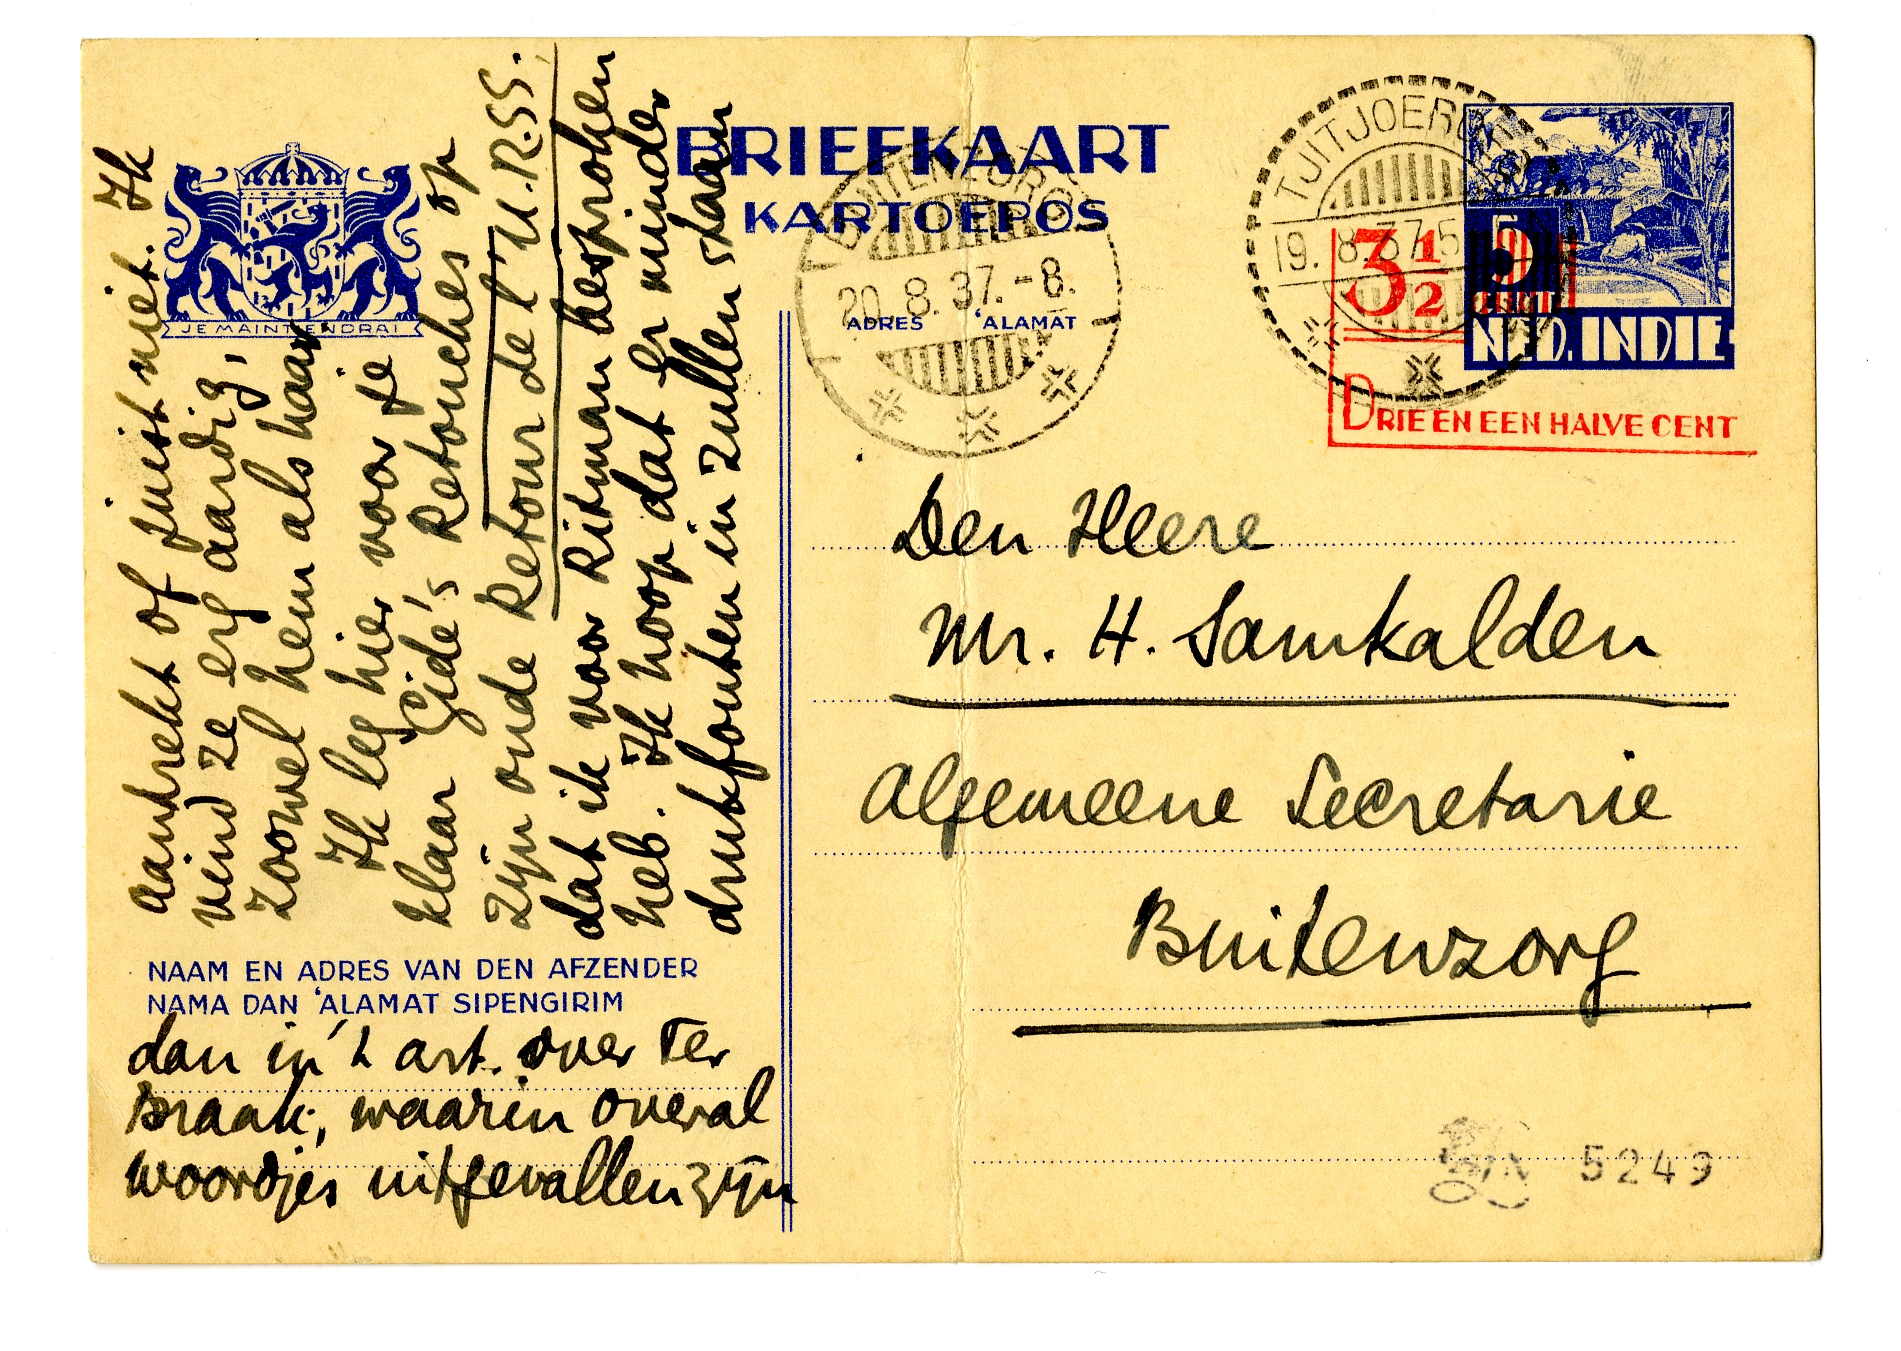 BRIEFKAART
KARTOEPOS
JE MAINTIENDRAI
ADRES 'ALAMAT
BUITENZORG
20.8.37.-8.
TJITJOEROEG
19.8.37.5
5
cent
3½
NED. INDIE
DRIE EN EEN HALVE CENT
aantrekt of juist niet. Ik
vind ze erg aardig,
zoowel hem als haar
Ik leg hier voor je
klaar Gide's Retouches op
zijn oude Retour de l'U.R.S.S.
dat ik voor Ritman besproken
heb. Ik hoop dat er minder
drukfouten in zullen staan
NAAM EN ADRES VAN DEN AFZENDER
NAMA DAN 'ALAMAT SIPENGIRIM
dan in 't art. over Ter
Braak, waarin overal
woordjes uitgevallen zijn
Den Heere
Mr. H. Samkalden
Algemeene Secretarie
Buitenzorg
5249